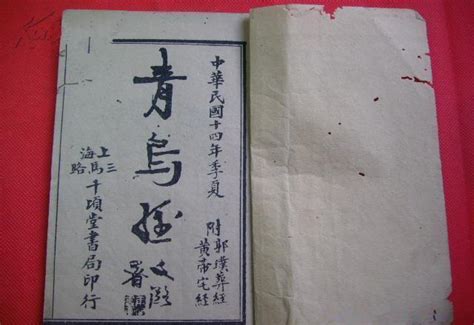 中華民國十四年季夏
附郭璞葬經
黃帝宅經
青烏經
署
上海三馬路千頃堂書局印行